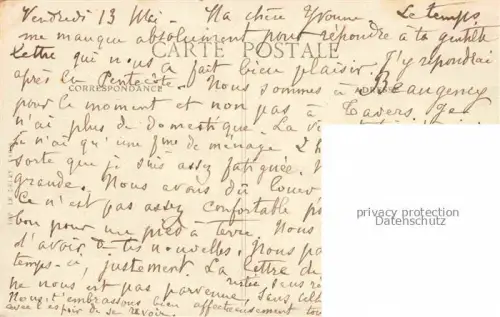 Vendredi 13 Mai - Ma chère Yvonne Le temps
me manque absolument pour répondre à ta gentille
CARTE POSTALE
lettre qui nous a fait bien plaisir. J'y répondrai
après la Pentecôte. Nous sommes à Beaugency
CORRESPONDANCE
pour le moment et non pas à Tavers. Je
n'ai plus de domestique. La
Je n'ai qu'une femme de ménage.
sorte que je suis assez fatiguée.
grande. Nous avons dû
Ce n'est pas assez confortable
bon pour un pied à terre. Nous
d'avoir de tes nouvelles. Nous
temps-ci, justement. La lettre de
ne nous est pas parvenue,
Nous t'embrassons bien affectueusement
avec l'espoir de se revoir
privacy protection
Datenschutz